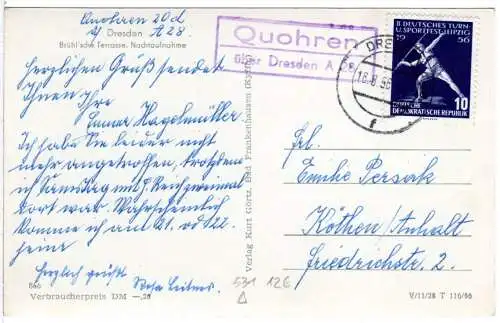 Quohren 20d
b/ Dresden A 28.
Brühl'sche Terrasse, Nachtaufnahme
Herzlichen Gruß sendet
Ihnen Ihre
Hagelmüller
Ich habe Sie leider nicht
mehr angetroffen, trotzdem
ich Samstag mit zweimal
dort war. Wahrscheinlich
komme ich am 21. od 22.
heim
Herzlich grüßt
866
Verbraucherpreis DM -,20
Verlag Kurt Görtz, Bad Frankenhausen (Kyffh.)
531 126
Quohren
über Dresden A 28
DRE
18.8.56
f
II. DEUTSCHES TURN
U. SPORTFEST LEIPZIG
19 56
10
DEUTSCHE
DEMOKRATISCHE REPUBLIK
Frl.
Emilie Persack
Köthen/Anhalt
Friedrichstr. 2.
V/11/28 T 116/56